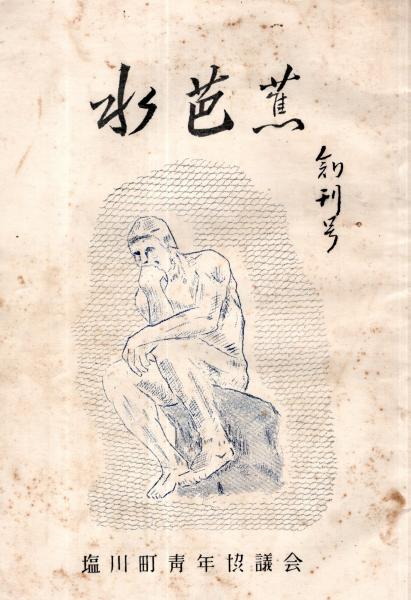 水芭蕉
創刊号
塩川町青年協議会